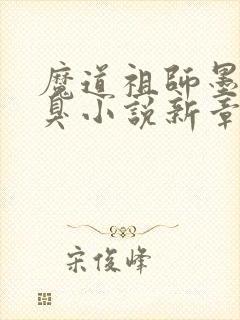 魔道祖師墨
臭小說新章
宋俊峰